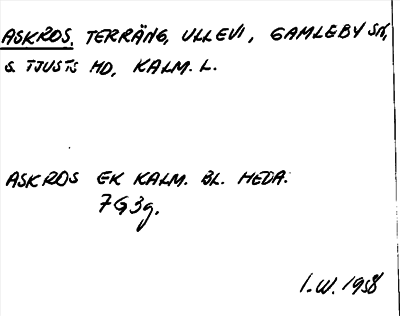 ASKROS, TERRÄNG, ULLEVI, GAMLEBY SN,
S. TJUSTS HD, KALM. L.
ASKROS EK KALM. BL. HEDA.
7G3g.
I.W. 1958